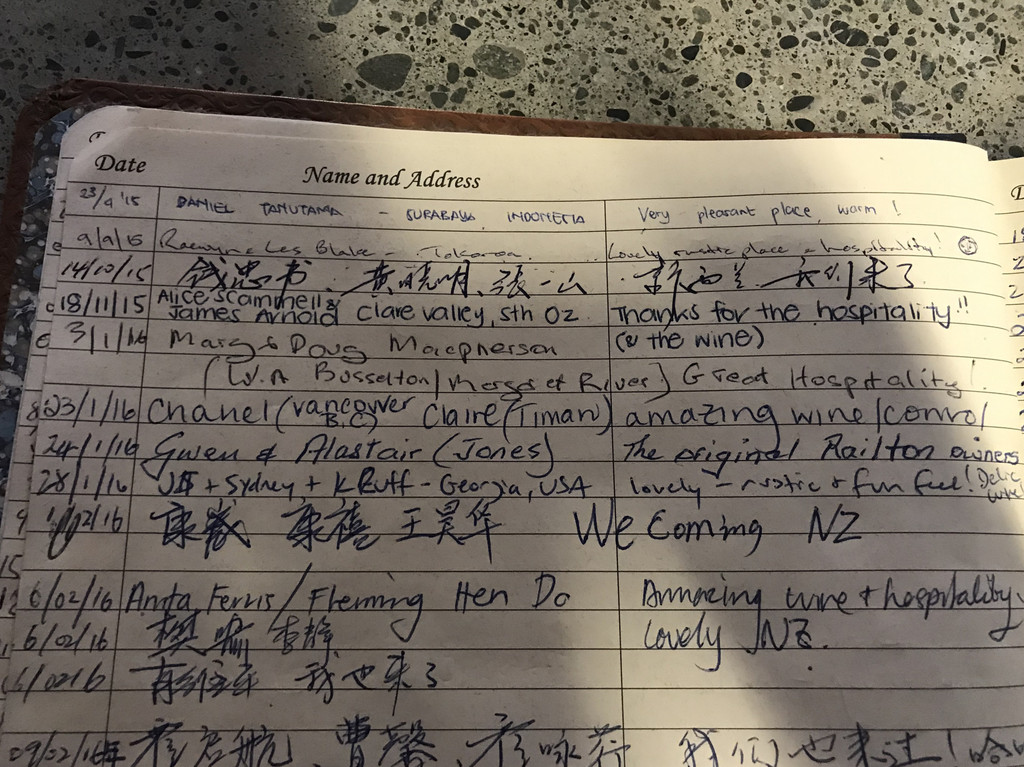 Date Name and Address
23/9/15 DANIEL TANUTAMA - SURABAYA INDONESIA Very pleasant place, warm!
9/9/15 Les Blake - Lovely place & hospitality!
14/10/15 钱忠书、黄晓明、张一山 来了
18/11/15 Alice Scammell & James Arnold Clare Valley, Sth Oz Thanks for the hospitality!!
3/1/16 Marg & Doug Macpherson (& the wine)
(W.A Busselton/Margaret River) Great Hospitality!
23/1/16 Chanel (Vancouver B.C) Claire (Timaru) amazing wine/convo/
24/1/16 Gwen & Alastair (Jones) The original Railton owners
28/1/16 + Sydney + K Ruff - Georgia, USA lovely - rustic & fun feel!
1/02/16 康 康禧 王昊华 We Coming NZ
6/02/16 Anita Ferris/Fleming Hen Do Amazing wine & hospitality
6/02/16 李静 Lovely NZ.
6/0216 我也来了
09/02/16 曹馨、 我们也来过!